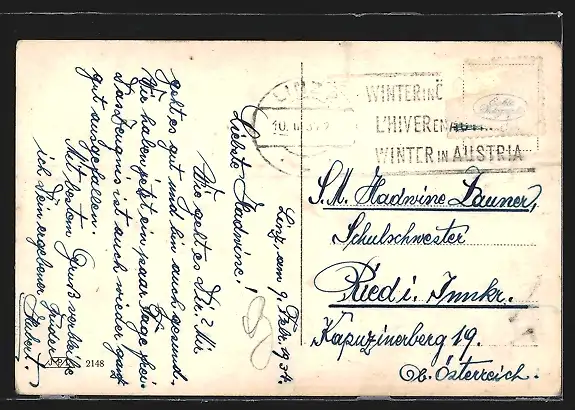 Linz, am 9. Febr. 1934.
Liebste Hadwine!
Wie geht es Dir? Mir
geht es gut und bin auch gesund.
Wir haben jetzt ein paar Tage frei.
Das Zeugnis ist auch wieder ganz
gut ausgefallen.
Mit bestem Gruß verbleibe
ich Dein ergebener Bruder
Hubert.
2148
LINZ
10. II. 34
WINTER IN Ö
L'HIVER EN AUTRI
WINTER IN AUSTRIA
S.M. Hadwine Launer,
Schulschwester
Ried i. Innkr.
Kapuzinerberg 19.
Ob. Österreich.